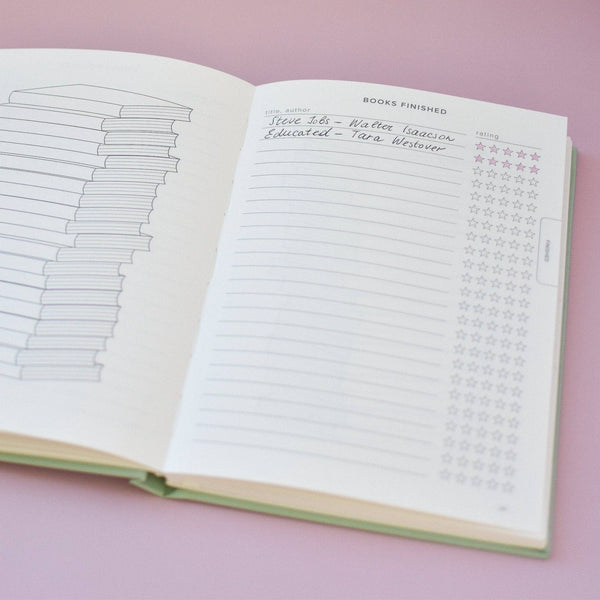 BOOKS FINISHED
title, author rating
Steve Jobs – Walter Isaacson
Educated – Tara Westover